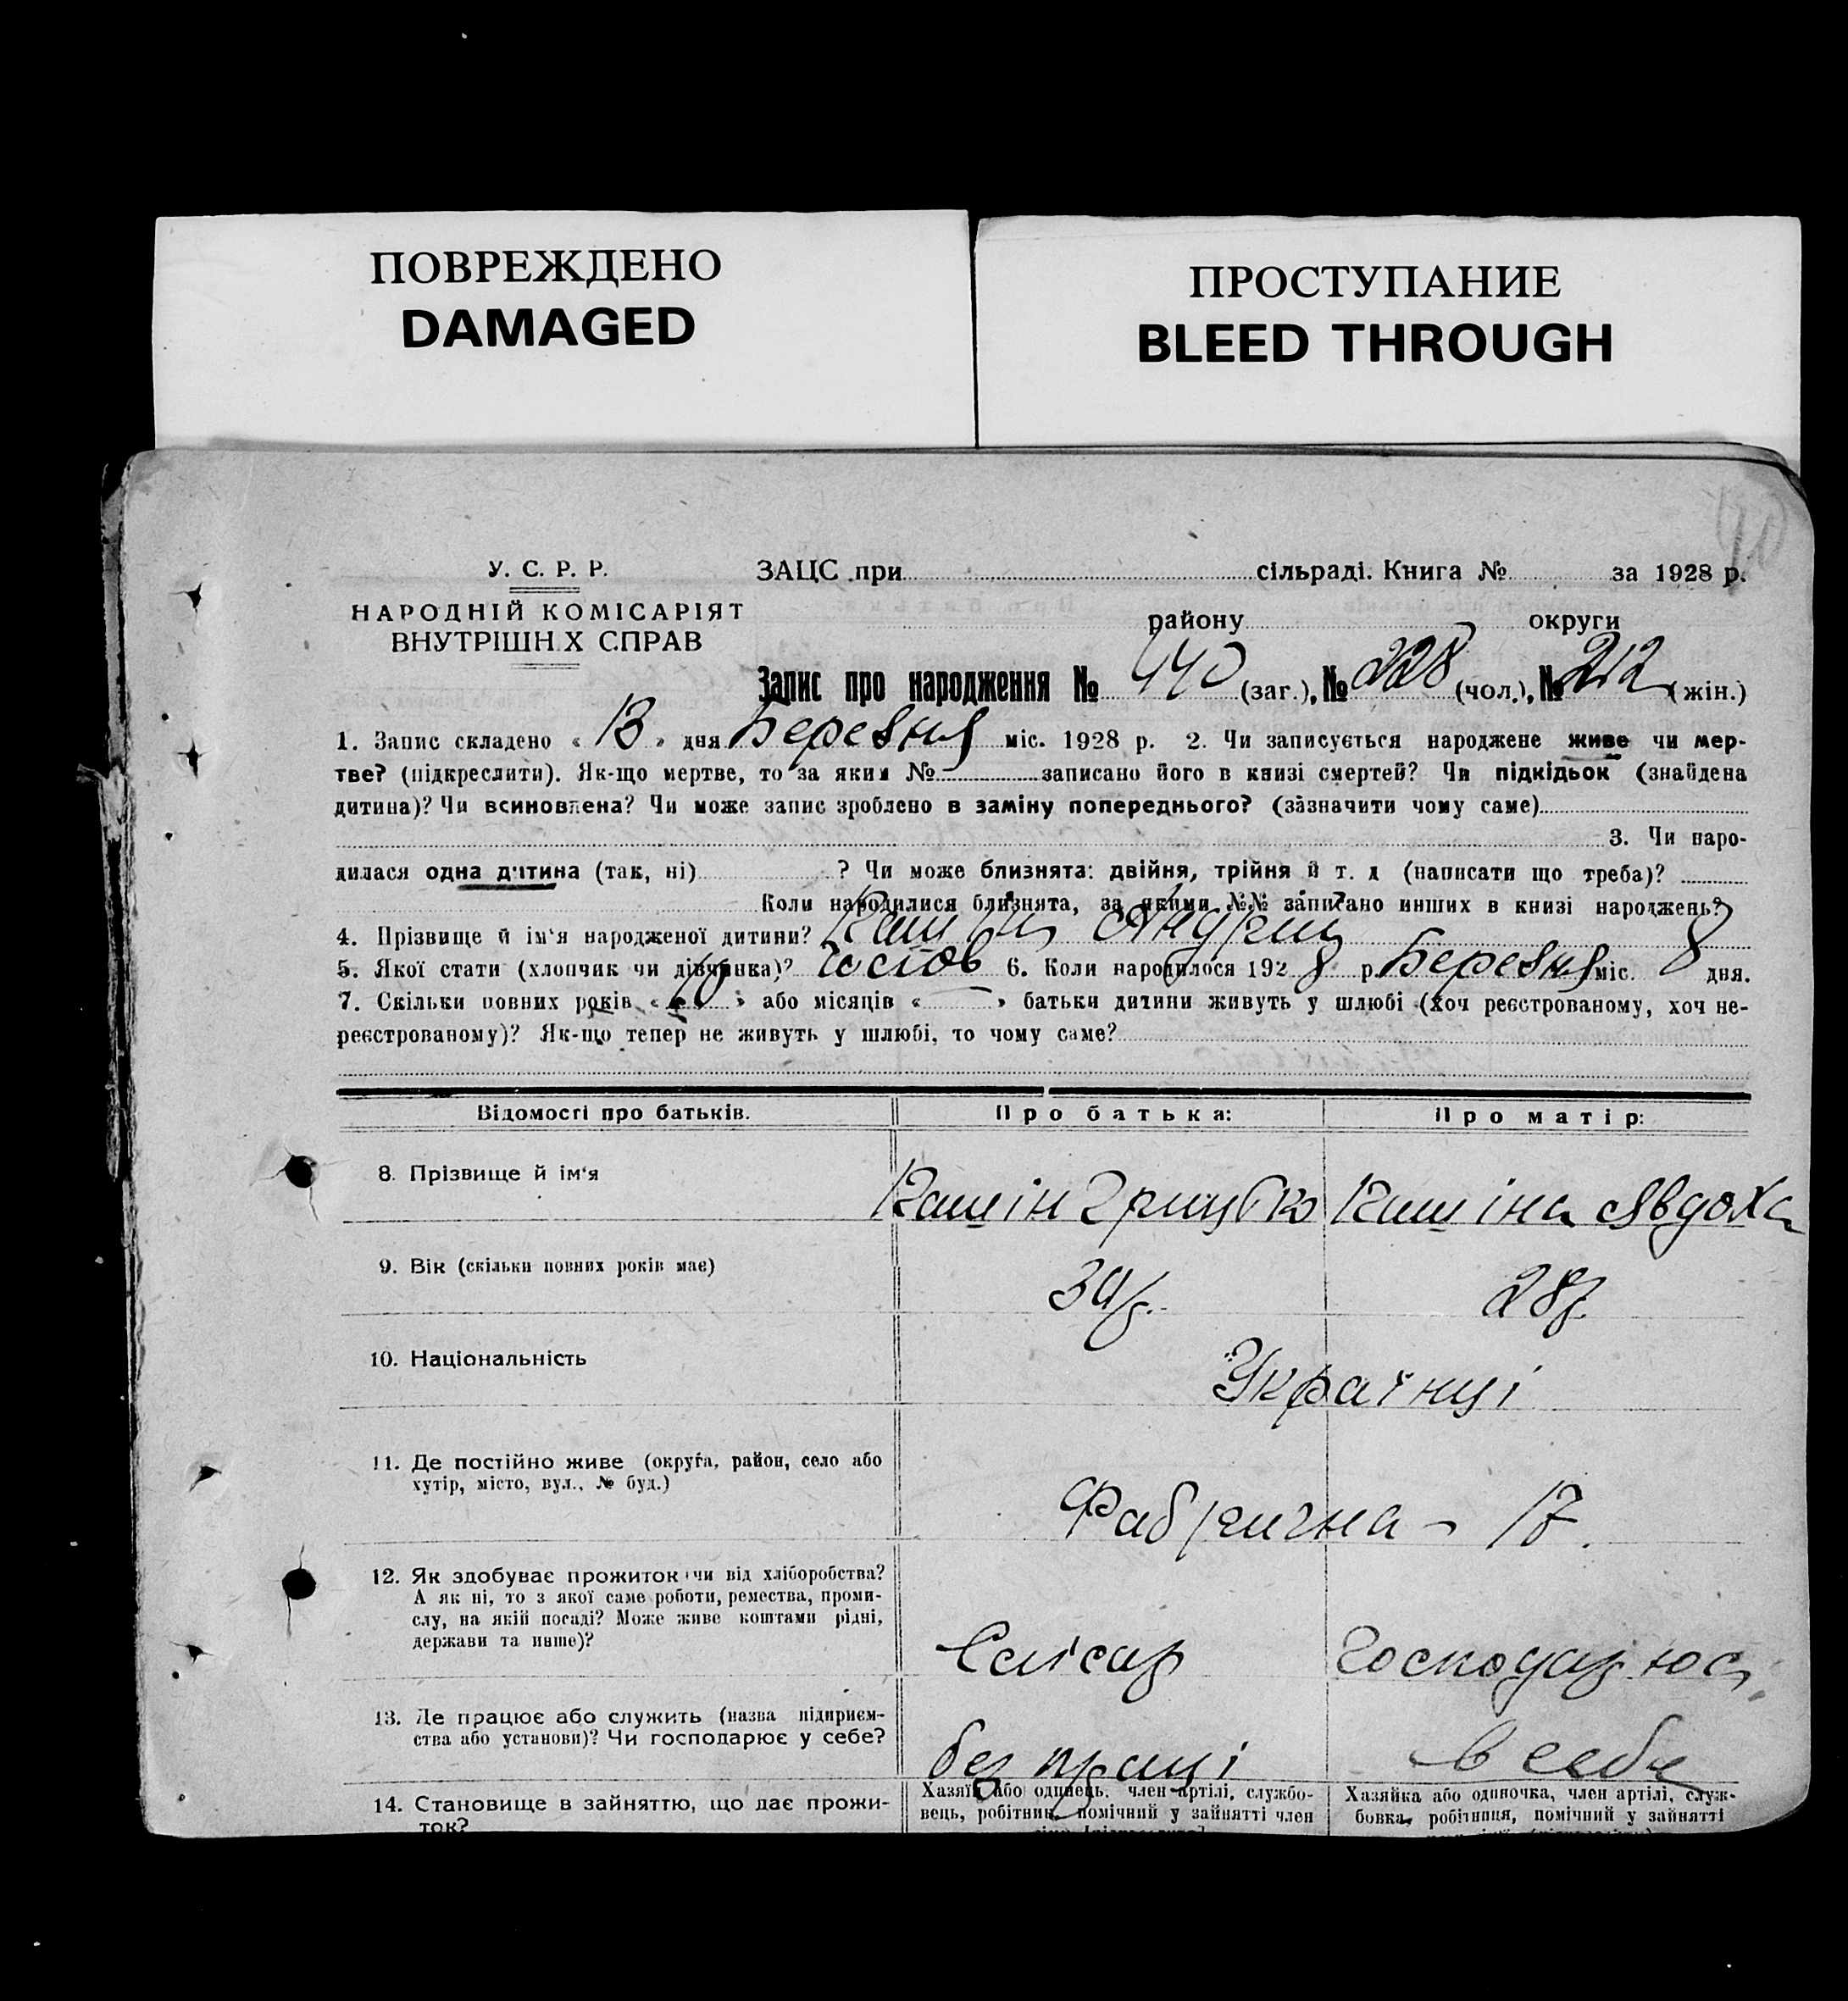 ПОВРЕЖДЕНО
DAMAGED
ПРОСТУПАНИЕ
BLEED THROUGH
У. С. Р. Р.
НАРОДНІЙ КОМІСАРІЯТ
ВНУТРІШН Х СПРАВ
ЗАЦС при сільраді. Книга № за 1928 р.
району округи
Запис про народження № 440 (заг.), № 228 (чол.), № 212 (жін.)
1. Запис складено « 13 » дня Березня міс. 1928 р. 2. Чи записується народжене живе чи мер-
тве? (підкреслити). Як-що мертве, то за яким № записано його в книзі смертей? Чи підкідьок (знайдена
дитина)? Чи всиновлена? Чи може запис зроблено в заміну попереднього? (зазначити чому саме)
3. Чи наро-
дилася одна дитина (так, ні) ? Чи може близнята: двійня, трійня й т. д (написати що треба)?
Коли народилися близнята, за якими №№ записано инших в книзі народжень?
4. Прізвище й ім'я народженої дитини? Кашін Андрій
5. Якої стати (хлопчик чи дівчинка)? 6. Коли народилося 1928 р. Березня міс. 8 дня.
7. Скільки повних років « » або місяців « » батьки дитини живуть у шлюбі (хоч реєстрованому, хоч не-
реєстрованому)? Як-що тепер не живуть у шлюбі, то чому саме?
Відомості про батьків. Про батька: Про матір:
8. Прізвище й ім'я Кашін Грицько Кашіна Явдоха
9. Вік (скільки повних років має) 34 р. 28 р.
10. Національність Українці
11. Де постійно живе (округа, район, село або
хутір, місто, вул., № буд.)
Фабрична - 17.
12. Як здобуває прожиток чи від хліборобства?
А як ні, то з якої саме роботи, ремества, проми-
слу, на якій посаді? Може живе коштами рідні,
держави та инше)?
Слісар Господарює
13. Де працює або служить (назва підприєм-
ства або установи)? Чи господарює у себе?
без праці в себе
14. Становище в зайняттю, що дає прожи-
ток?
Хазяїн або одинець, член артілі, службо-
вець, робітник, помічний у зайнятті член
Хазяйка або одиночка, член артілі, служ-
бовка, робітниця, помічний у зайнятті